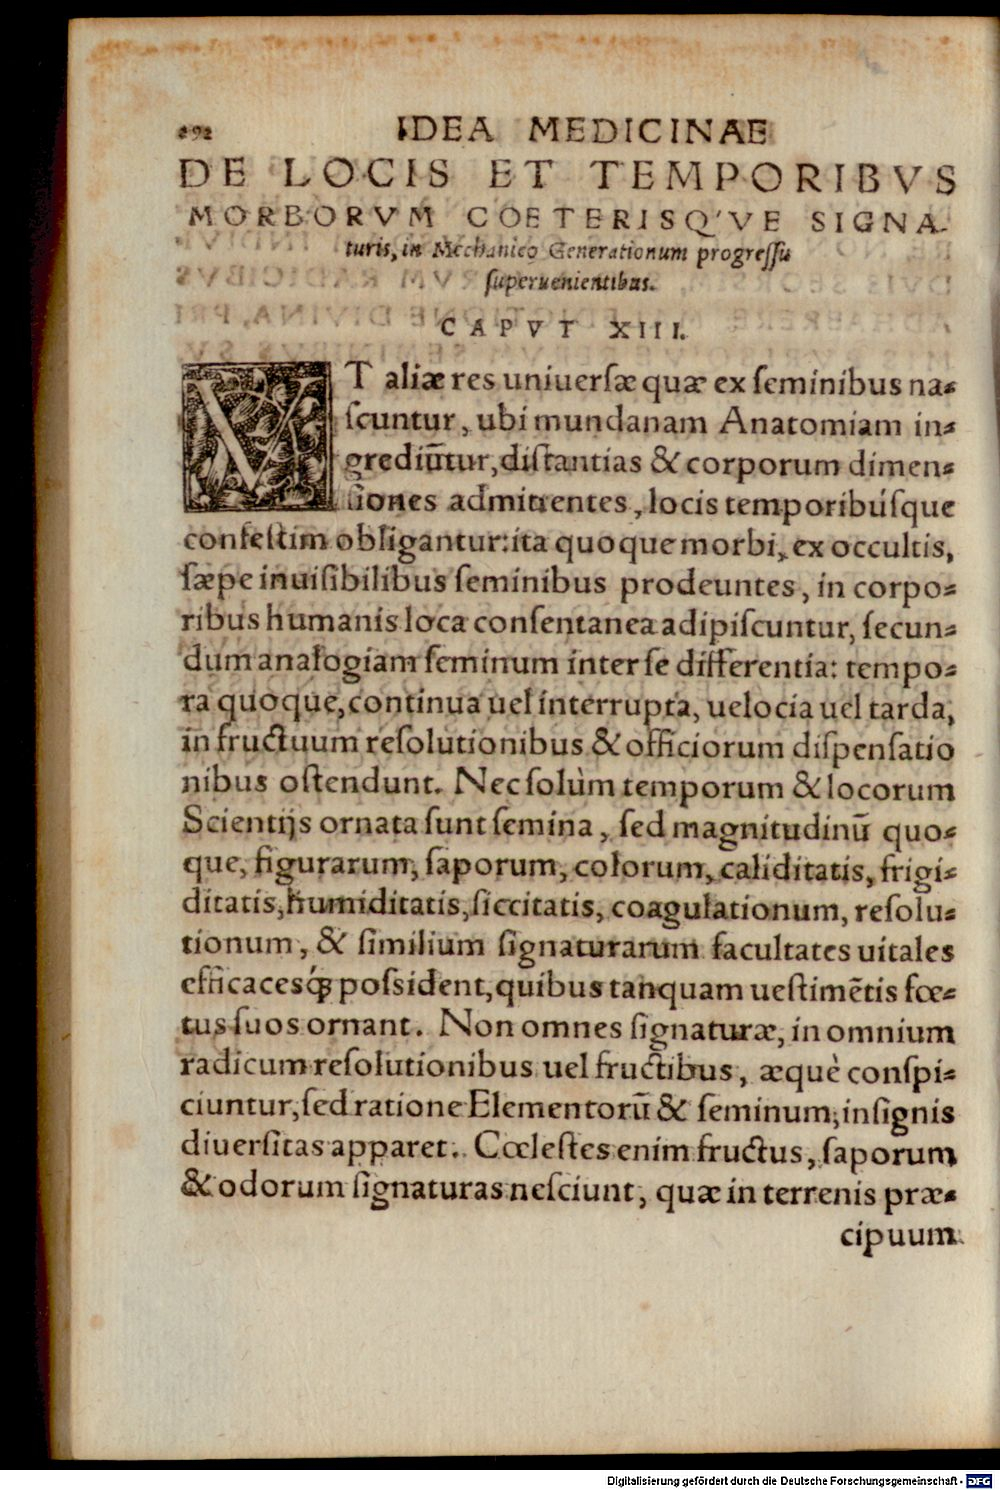 292 IDEA MEDICINAE
DE LOCIS ET TEMPORIBVS
MORBORVM COETERISQ'VE SIGNA-
turis, in Mechanico Generationum progressu
superuenientibus.
CAPVT XIII.
VT aliæ res uniuersæ quæ ex seminibus na-
scuntur, ubi mundanam Anatomiam in-
grediūtur, distantias & corporum dimen-
siones admittentes, locis temporibúsque
confestim obligantur: ita quoque morbi, ex occultis,
sæpe inuisibilibus seminibus prodeuntes, in corpo-
ribus humanis loca consentanea adipiscuntur, secun-
dum analogiam seminum inter se differentia: tempo-
ra quoque, continua uel interrupta, uelocia uel tarda,
in fructuum resolutionibus & officiorum dispensatio
nibus ostendunt. Nec solùm temporum & locorum
Scientijs ornata sunt semina, sed magnitudinū quo-
que, figurarum, saporum, colorum, caliditatis, frigi-
ditatis, humiditatis, siccitatis, coagulationum, resolu-
tionum, & similium signaturarum facultates uitales
efficacesq́; possident, quibus tanquam uestimētis fœ-
tus suos ornant. Non omnes signaturæ, in omnium
radicum resolutionibus uel fructibus, æquè conspi-
ciuntur, sed ratione Elementorū & seminum, insignis
diuersitas apparet. Cœlestes enim fructus, saporum
& odorum signaturas nesciunt, quæ in terrenis præ-
cipuum
Digitalisierung gefördert durch die Deutsche Forschungsgemeinschaft - DFG